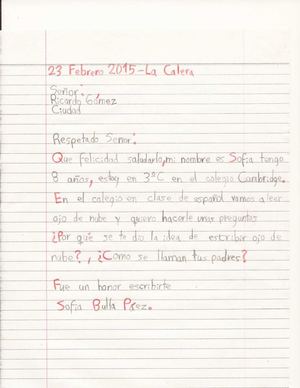 23 Febrero 2015-La Calera
Señor:
Ricardo Gómez
Ciudad
Respetado Senor:
Que felicidad saludarlo, mi nombre es Sofia tengo
8 años, estoy en 3°C en el colegio Cambridge.
En el colegio en clase de español vamos a leer
ojo de nube y quiero hacerle unas preguntas
¿Por qué se te dio la idea de escribir ojo de
nube?, ¿Como se llaman tus padres?
Fue un honor escribirte
Sofia Bulla